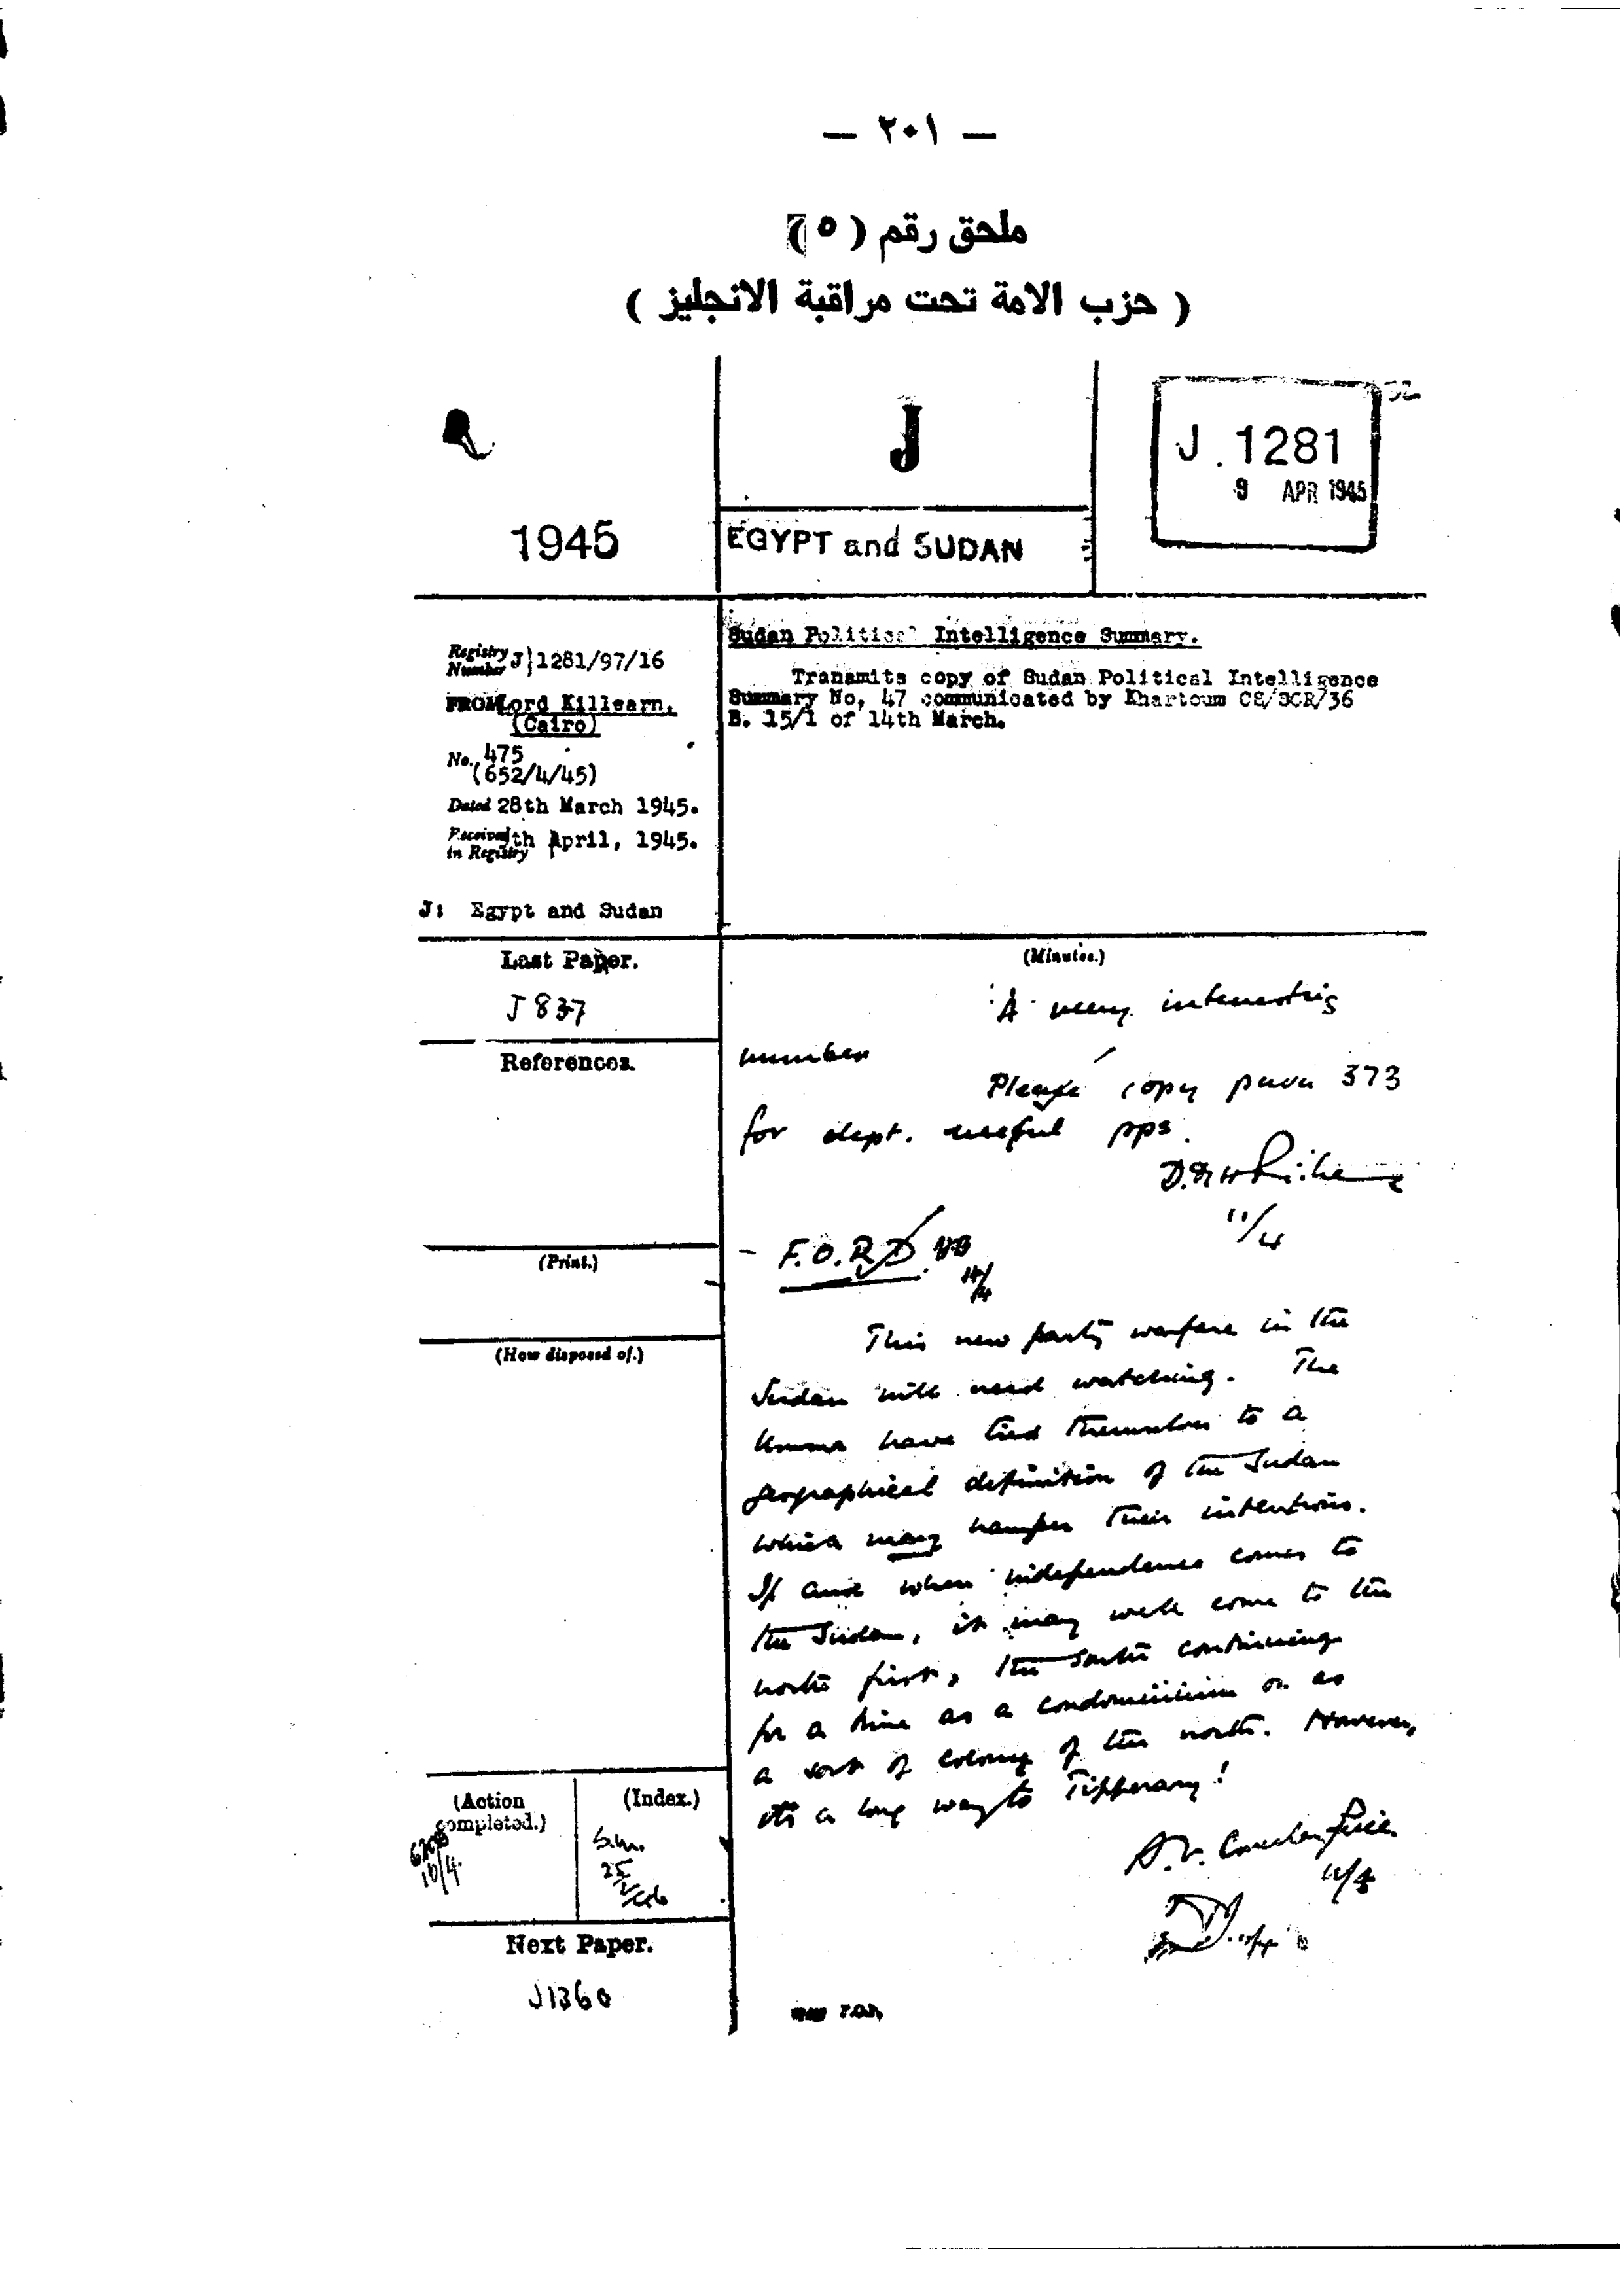 — ٢٠١ —
ملحق رقم ( ٥ )
( حزب الامة تحت مراقبة الانجليز )
J
J. 1281
9 APR 1945
1945
EGYPT and SUDAN
Registry Number J 1281/97/16
FROM Lord Killearn.
(Cairo)
No. 475
(652/4/45)
Dated 28th March 1945.
Received in Registry th April, 1945.
J: Egypt and Sudan
Sudan Political Intelligence Summary.
Transmits copy of Sudan Political Intelligence
Summary No, 47 communicated by Khartoum CS/SCR/36
B. 15/1 of 14th March.
Last Paper.
J 837
References.
(Print.)
(How disposed of.)
(Action completed.)
10/4
(Index.)
Next Paper.
J1360
(Minutes.)
A very interesting
number
Please copy para 373
for dept. useful pps.
11/4
F.O.R.D.
This new party warfare in the
Sudan will need watching. The
Umma have tied themselves to a
geographical definition of the Sudan
which may hamper their intentions.
If and when independence comes to
the Sudan, it may well come to the
north first, the south continuing
for a time as a condominium or as
a sort of colony of the north. However,
it's a long way to Tipperary!